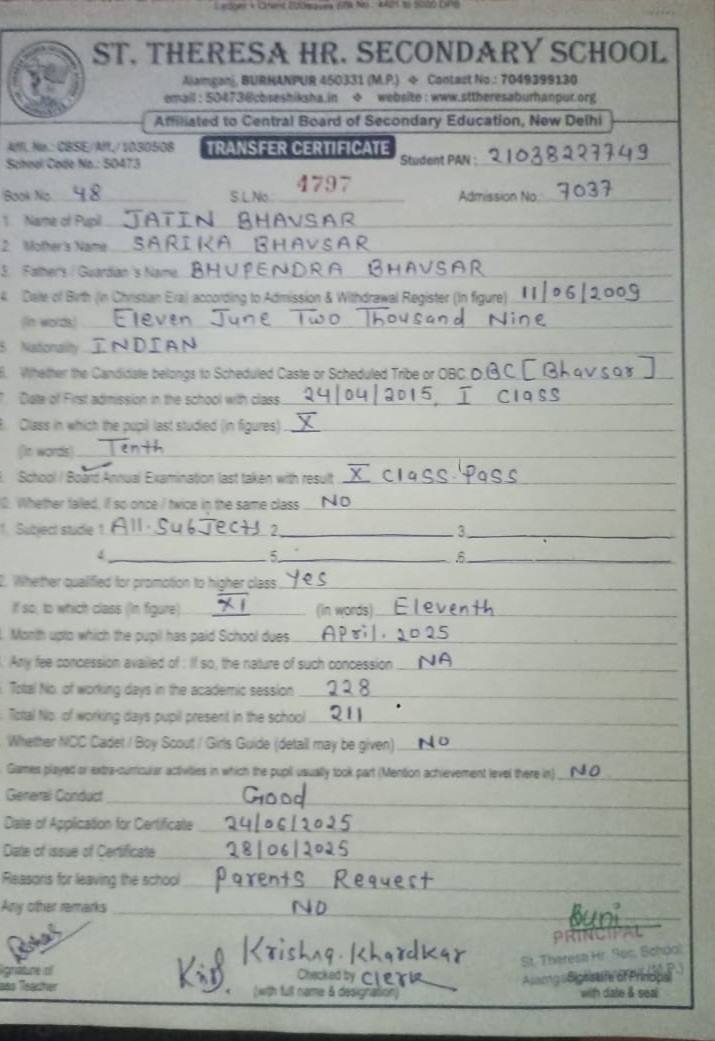 ST. THERESA HR. SECONDARY SCHOOL
Alamganj, BURHANPUR 450331 (M.P.) ❖ Contact No.: 7049399130
email : 50473@cbseshiksha.in ❖ website : www.sttheresaburhanpur.org
Affiliated to Central Board of Secondary Education, New Delhi
Affl. No.: CBSE/Aff./1030508 TRANSFER CERTIFICATE Student PAN : 21038227749
School Code No.: 50473
Book No. 48 S.L.No. 4797 Admission No. 7037
1. Name of Pupil JATIN BHAVSAR
2. Mother's Name SARIKA BHAVSAR
3. Father's / Guardian's Name BHUPENDRA BHAVSAR
4. Date of Birth (in Christian Era) according to Admission & Withdrawal Register (in figure) 11/06/2009
(in words) Eleven June Two Thousand Nine
5. Nationality INDIAN
Whether the Candidate belongs to Scheduled Caste or Scheduled Tribe or OBC OBC [Bhavsar]
Date of First admission in the school with class 24/04/2015, I Class
Class in which the pupil last studied (in figures) X
(in words) Tenth
School / Board Annual Examination last taken with result X Class Pass
Whether failed, if so once / twice in the same class NO
Subject studie 1. All. SubJects 2. 3.
4. 5. 6.
Whether qualified for promotion to higher class Yes
If so, to which class (in figure) XI (in words) Eleventh
Month upto which the pupil has paid School dues APril. 2025
Any fee concession availed of : If so, the nature of such concession NA
Total No. of working days in the academic session 228
Total No. of working days pupil present in the school 211
Whether NCC Cadet / Boy Scout / Girls Guide (detail may be given) NO
Games played or extra-curricular activities in which the pupil usually took part (Mention achievement level there in) NO
General Conduct Good
Date of Application for Certificate 24/06/2025
Date of issue of Certificate 28/06/2025
Reasons for leaving the school Parents Request
Any other remarks NO
PRINCIPAL
Krishna. Khardkar
St. Theresa Hr. Sec. School
Signature of Checked by Clerk Signature of Principal
Class Teacher (with full name & designation) with date & seal